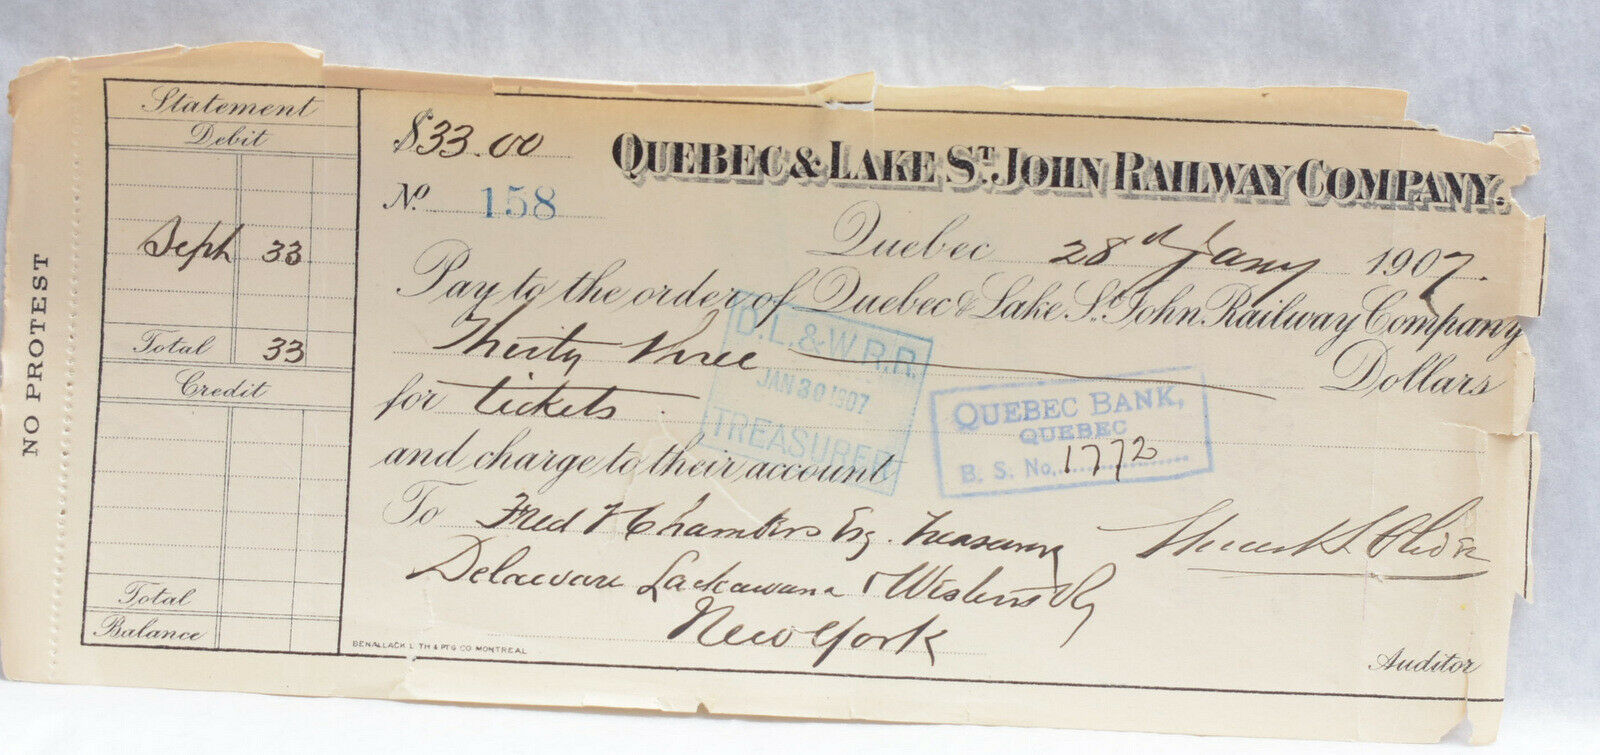 NO PROTEST
Statement
Debit
Sept 33
Total 33
Credit
Total
Balance
$33.00
QUEBEC & LAKE ST. JOHN RAILWAY COMPANY.
No. 158
Quebec 28th Jany 1907.
Pay to the order of Quebec & Lake St. John Railway Company
Thirty three Dollars
D.L. & W.R.R.
JAN 30 1907
TREASURER
for tickets.
QUEBEC BANK,
QUEBEC
B. S. No. 1772
and charge to their account
To Fred Chambers Esq. Treasurer
Delaware Lackawana & Western Ry
New York
BENALLACK LITH & PTG CO MONTREAL
Auditor